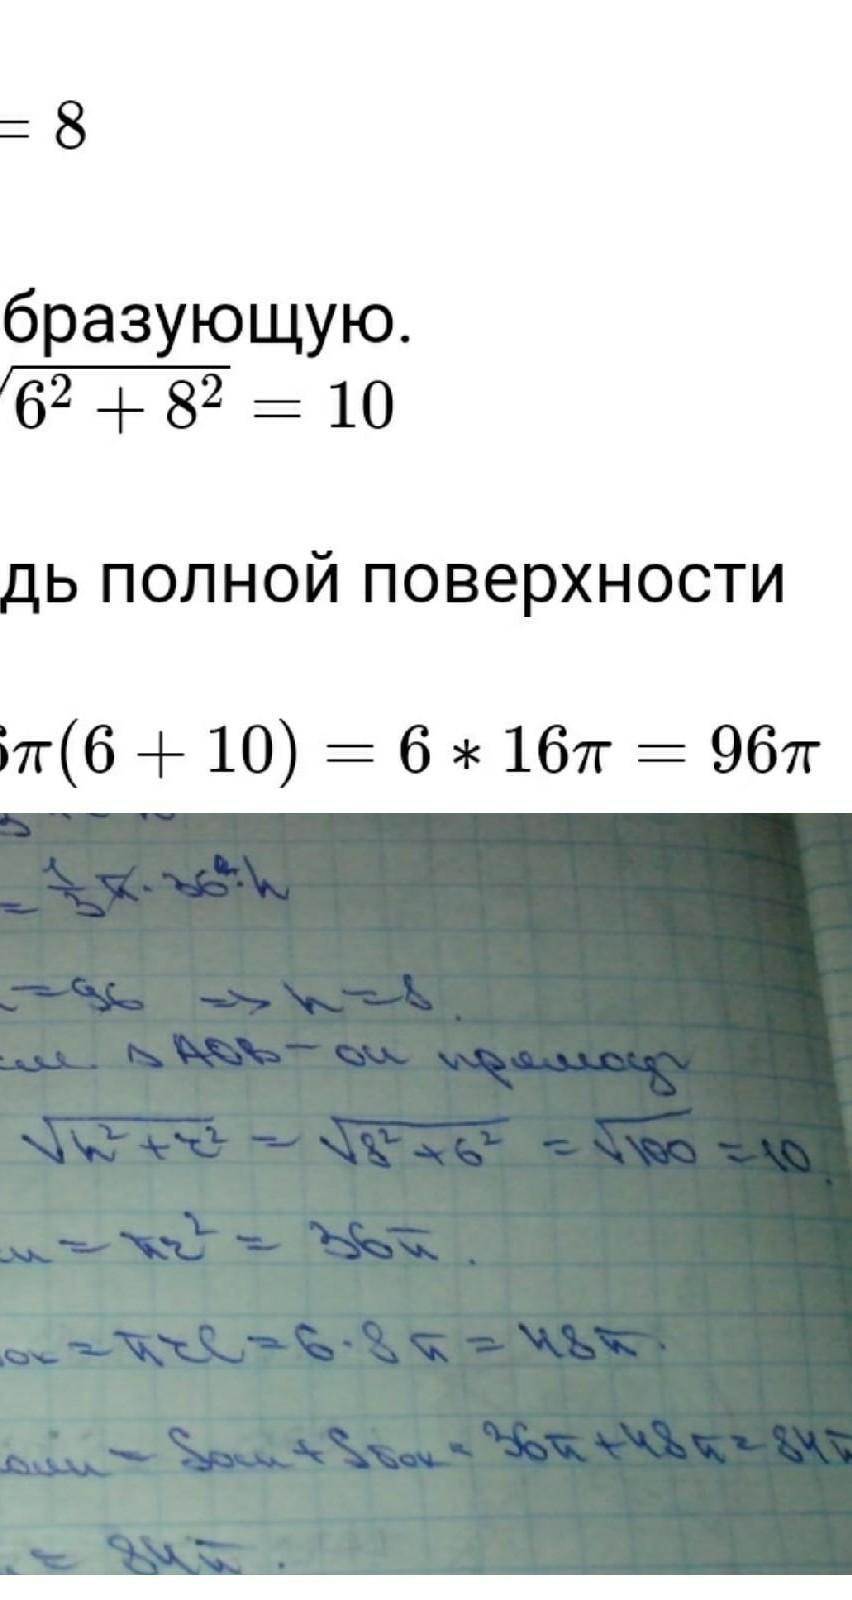 = 8
бразующую.
√6² + 8² = 10
дь полной поверхности
6π(6 + 10) = 6 * 16π = 96π
= 1/3 π · 36 · h
= 96 => h = 8.
△ AOB – он прямоуг
√h² + r² = √8² + 6² = √100 = 10.
= πr² = 36π.
ок = πrl = 6 · 8π = 48π.
= Sосн + Sбок = 36π + 48π = 84π
= 84π.